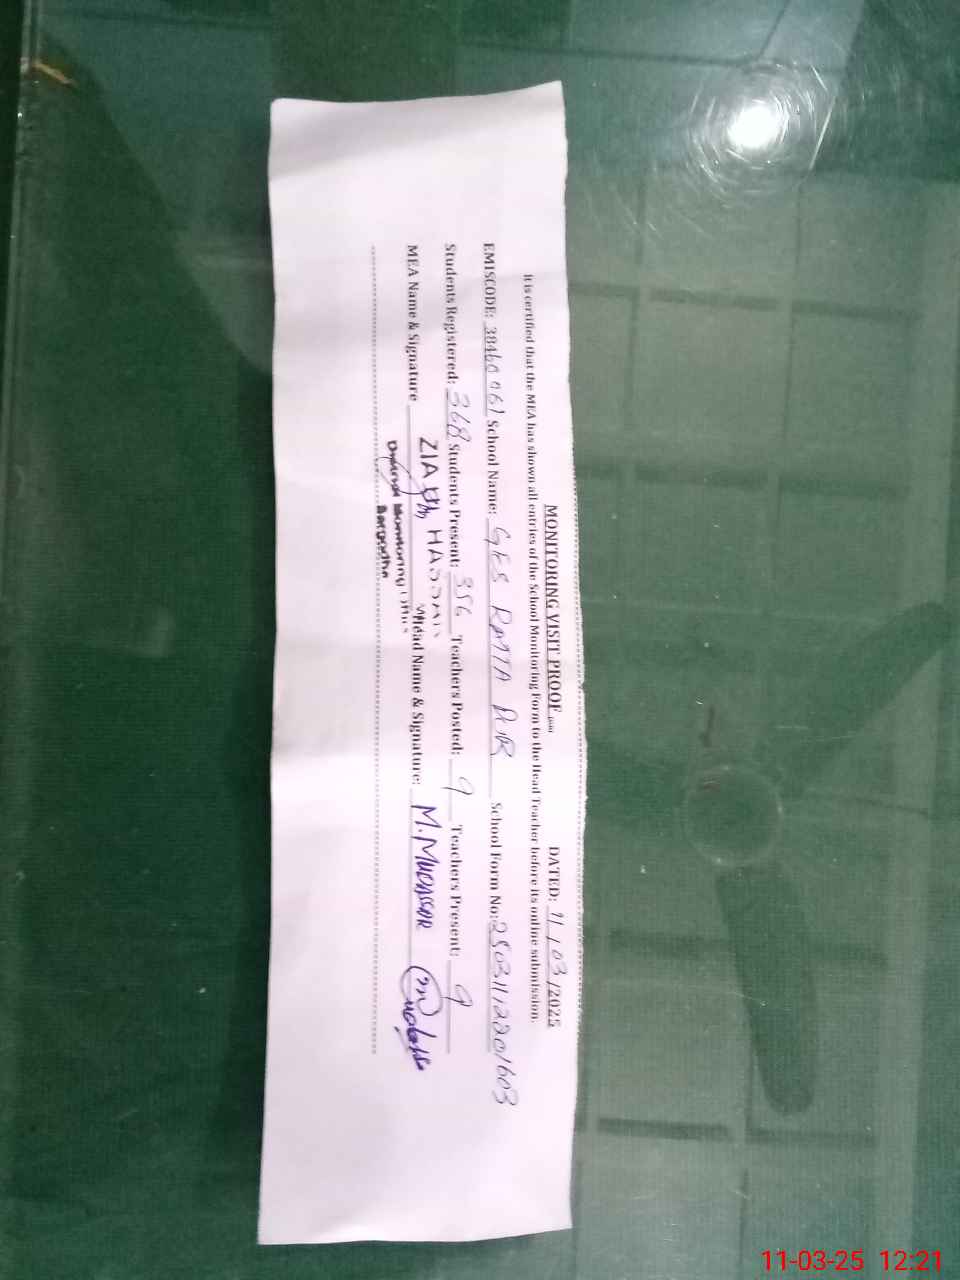 MONITORING VISIT PROOF
DATED: 11/03/2025
It is certified that the MEA has shown all entries of the School Monitoring Form to the Head Teacher before its online submission.
EMISCODE: 38460061 School Name: GES RATTA PUR School Form No: 25031112201603
Students Registered: 368 Students Present: 356 Teachers Posted: 9 Teachers Present: 9
MEA Name & Signature ZIA HASSAN Head Name & Signature: M. MUDASSAR
Monitoring
Sargodha
11-03-25 12:21